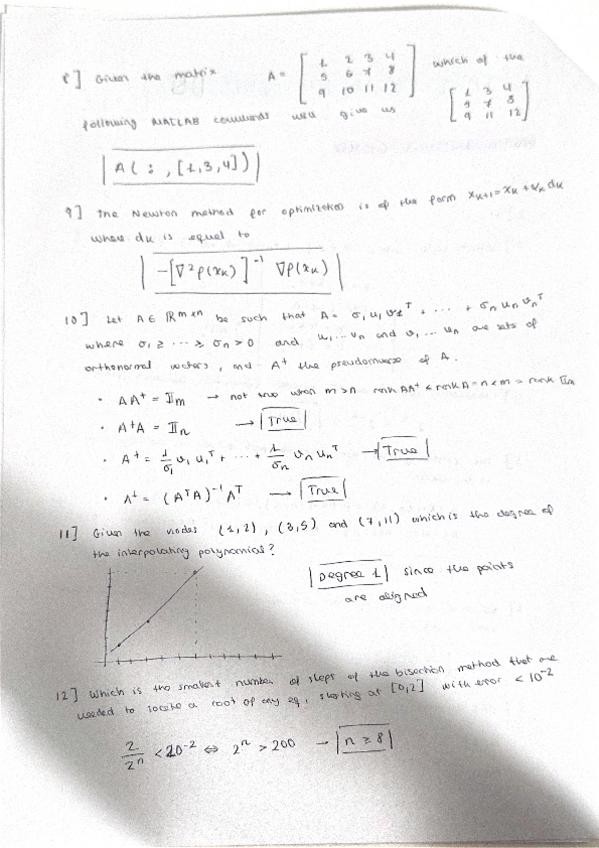 8] Given the matrix A = [ 1 2 3 4
5 6 7 8
9 10 11 12 ] which of the
following MATLAB commands will give us [ 1 3 4
5 7 8
9 11 12 ]
A( : , [1,3,4])
9] The Newton method for optimization is of the form xₖ₊₁ = xₖ + αₖ dₖ
where dₖ is equal to
-[∇²f(xₖ)]⁻¹ ∇f(xₖ)
10] Let A ∈ ℝᵐˣⁿ be such that A = σ₁ u₁ v₁ᵀ + ... + σₙ uₙ vₙᵀ
where σ₁ ≥ ... ≥ σₙ > 0 and u₁ ... uₙ and v₁ ... vₙ are sets of
orthonormal vectors, and A⁺ the pseudoinverse of A.
• AA⁺ = 𝕀m → not true when m>n rank AA⁺ ≤ rank A = n < m = rank 𝕀m
• A⁺A = 𝕀n → True
• A⁺ = 1/σ₁ v₁ u₁ᵀ + ... + 1/σₙ vₙ uₙᵀ → True
• A⁺ = (AᵀA)⁻¹ Aᵀ → True
11] Given the nodes (1,2), (3,5) and (7,11) which is the degree of
the interpolating polynomial?
Degree 1 since the points
are aligned
12] Which is the smallest number of steps of the bisection method that are
needed to locate a root of any eq, starting at [0,2] with error < 10⁻²
2/2ⁿ < 10⁻² ⇔ 2ⁿ > 200 → n ≥ 8